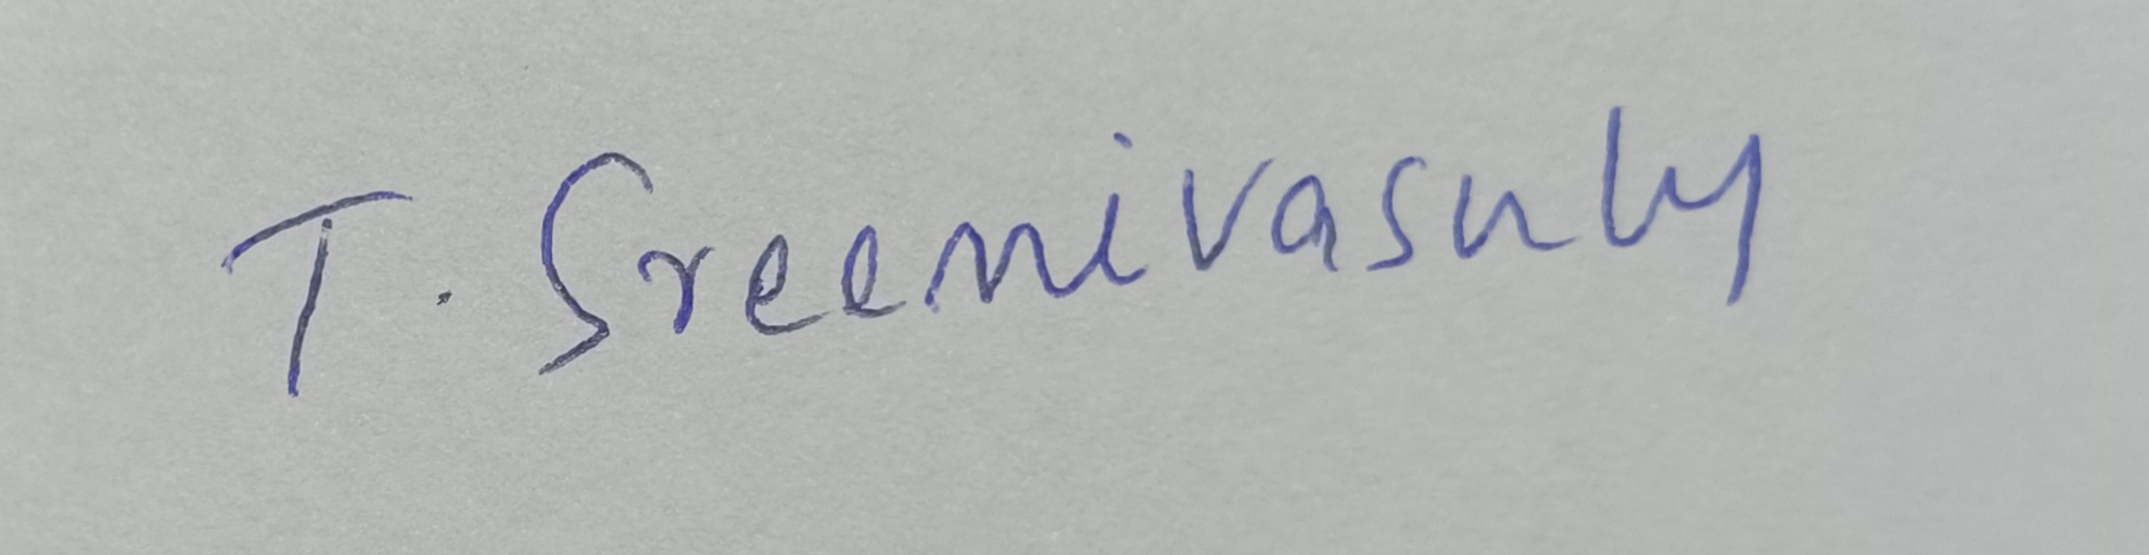 T. Sreenivasulu